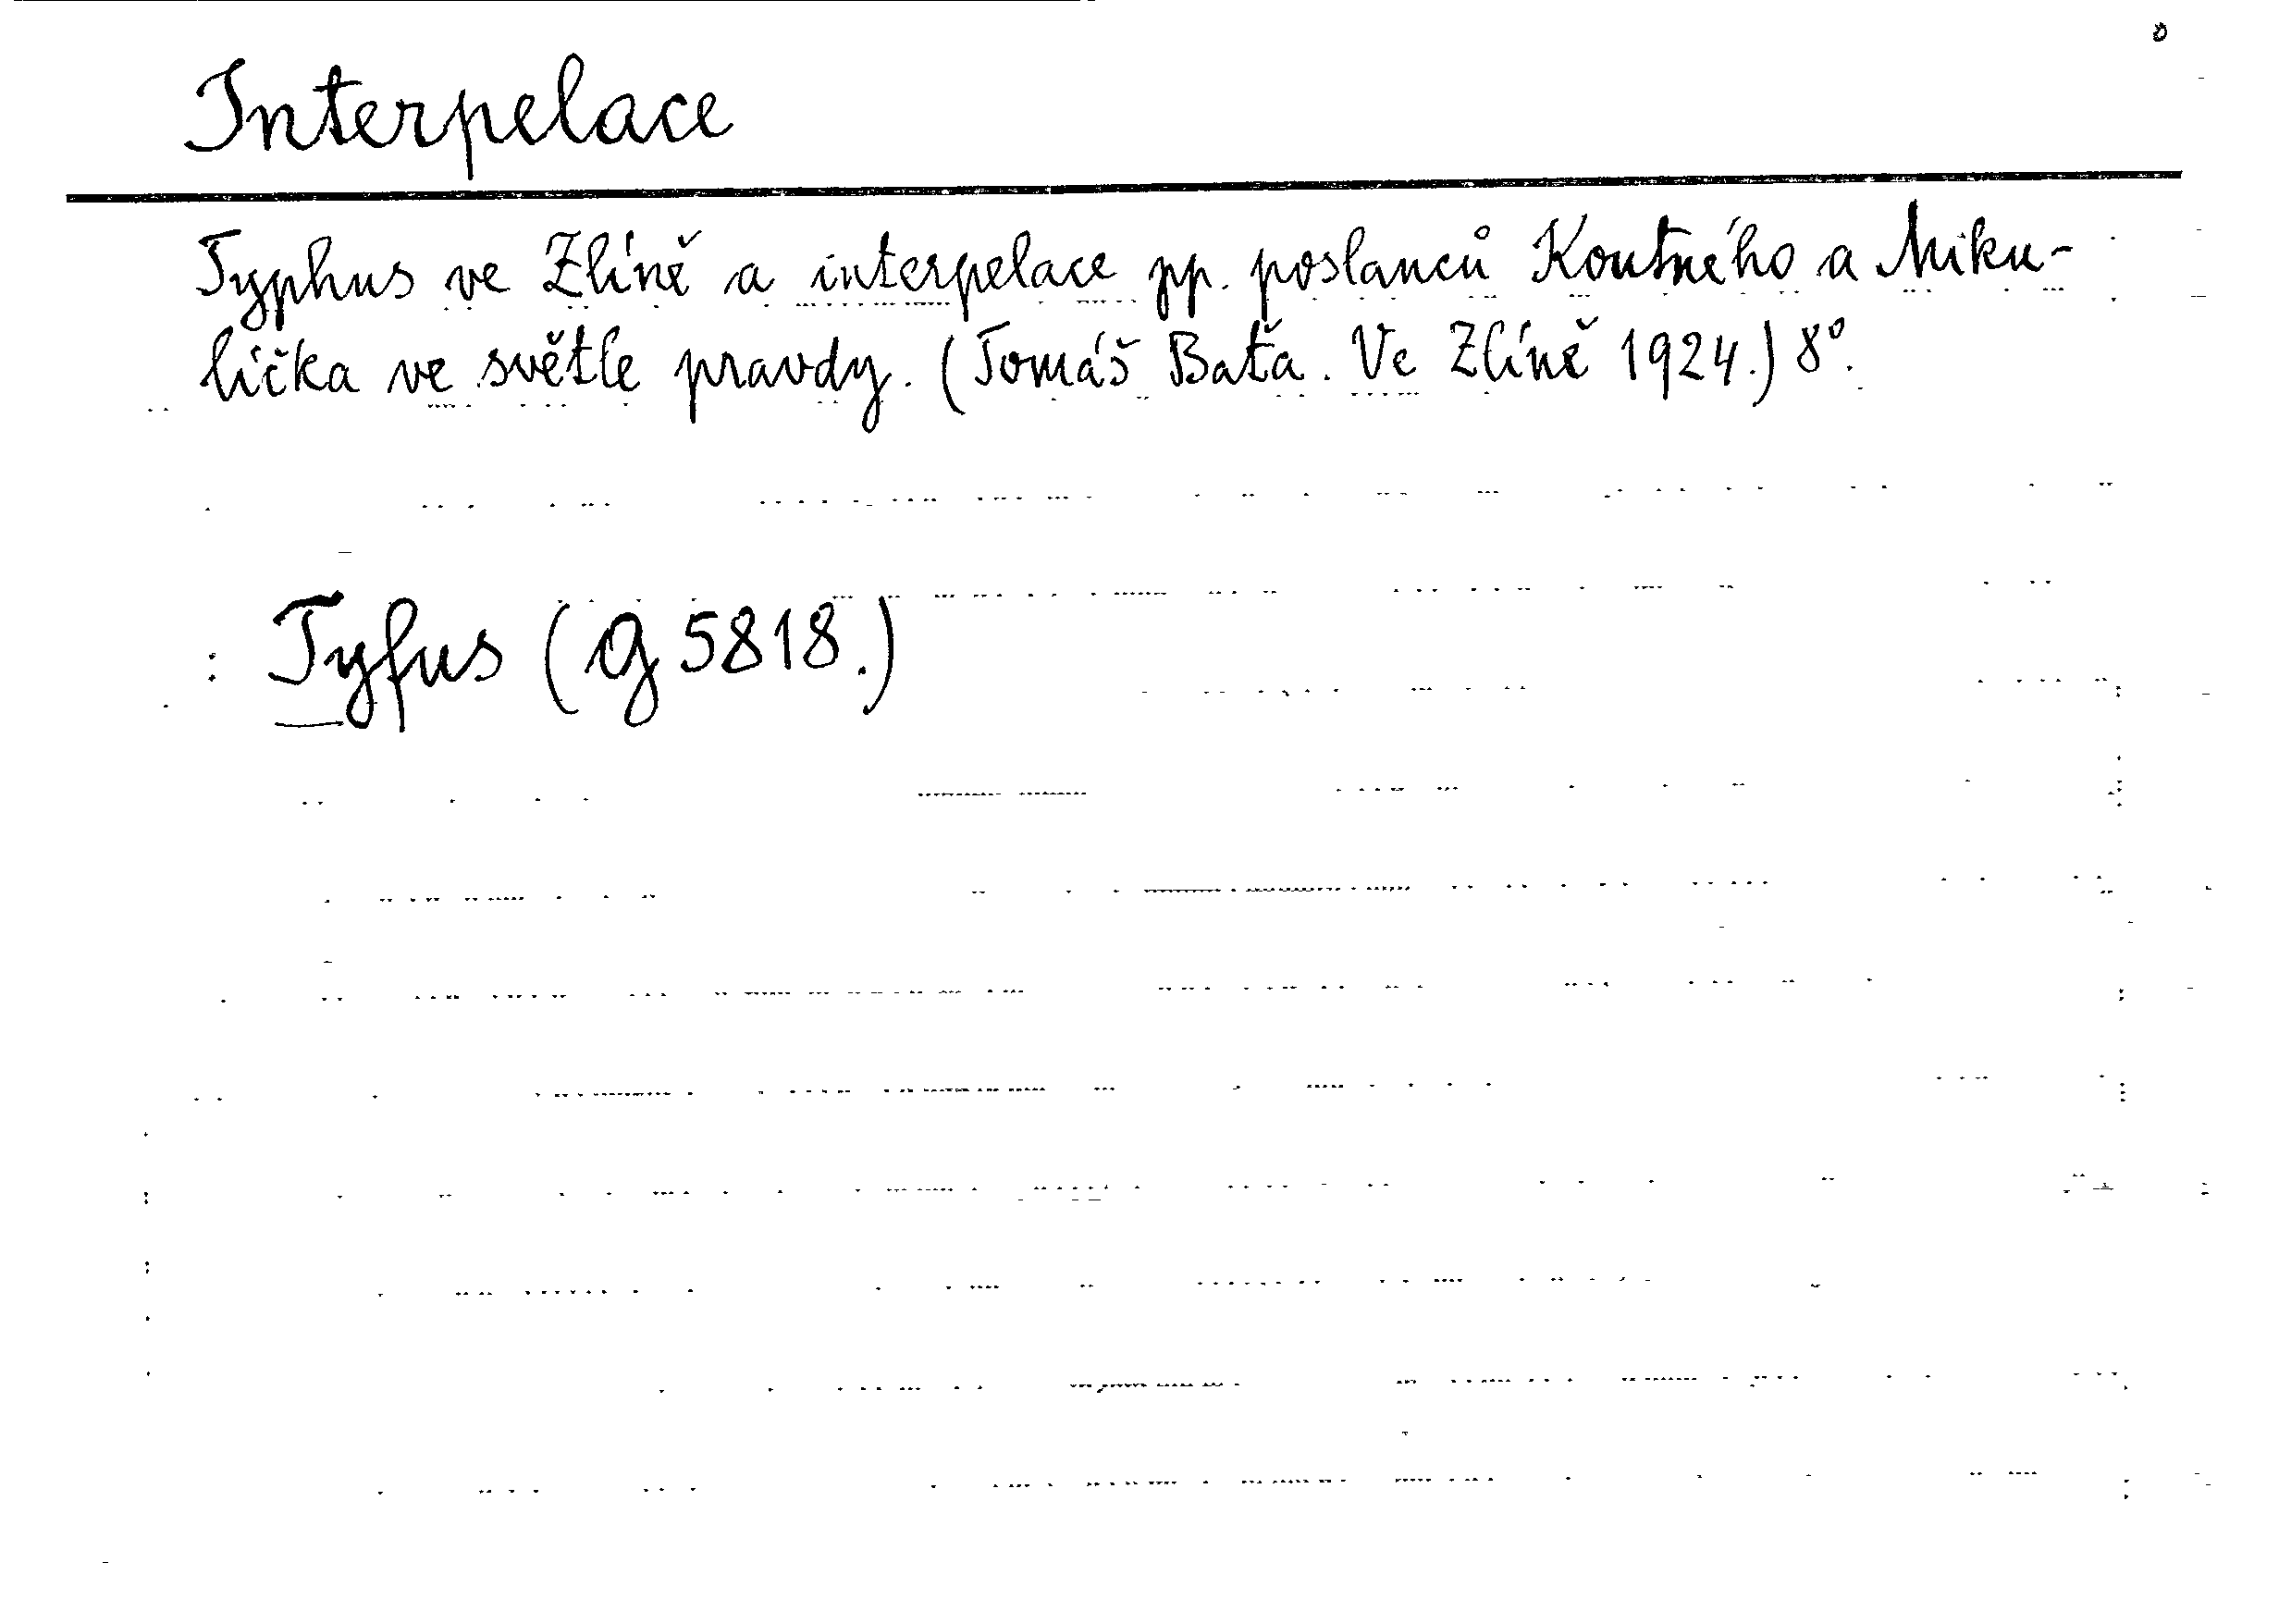 Interpelace
Typhus ve Zlíně a interpelace pp. poslanců Koutného a Miku-
líčka ve světle pravdy. (Tomáš Baťa. Ve Zlíně 1924.) 8°.
: Tyfus (g 5818.)